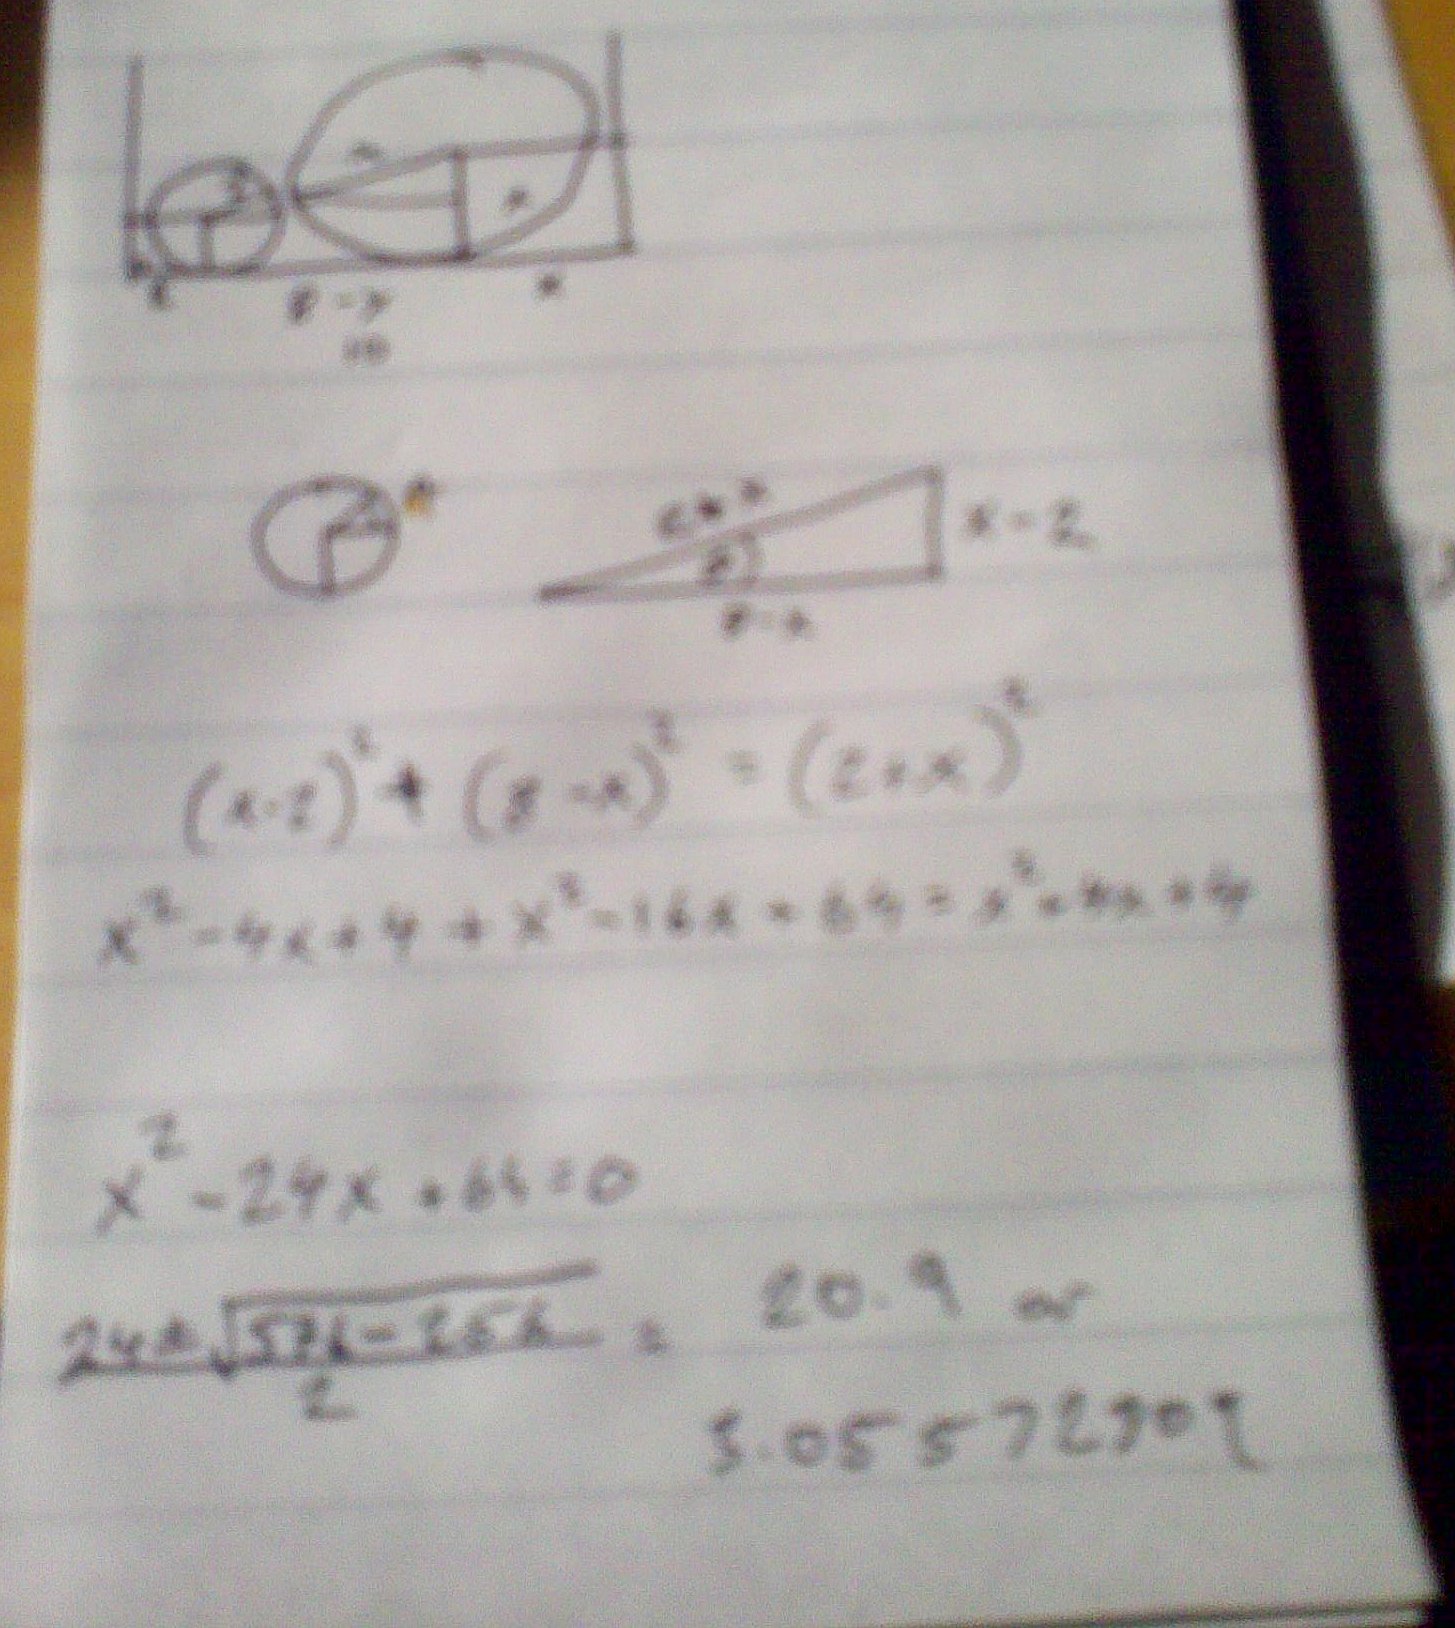 2
x
8 - x
x
10
2
2 + x
x - 2
8 - x
(x-2)² + (8 - x)² = (2+x)²
x² - 4x + 4 + x² - 16x + 64 = x² + 4x + 4
x² - 24x + 64 = 0
24 ± √576 - 256 / 2 = 20.9 or
3.05572809